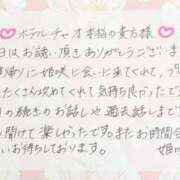 ホテルチャオ本陣の貴方様
日はお誘い頂きありがとうござい
帰りに姫咲に会いに来てくれて、
たくさん攻めてくれて気持ち良かったで
の続きのお話しや過去話しまで
聞けて楽しかったです。またお時間
お待ちしております。 姫